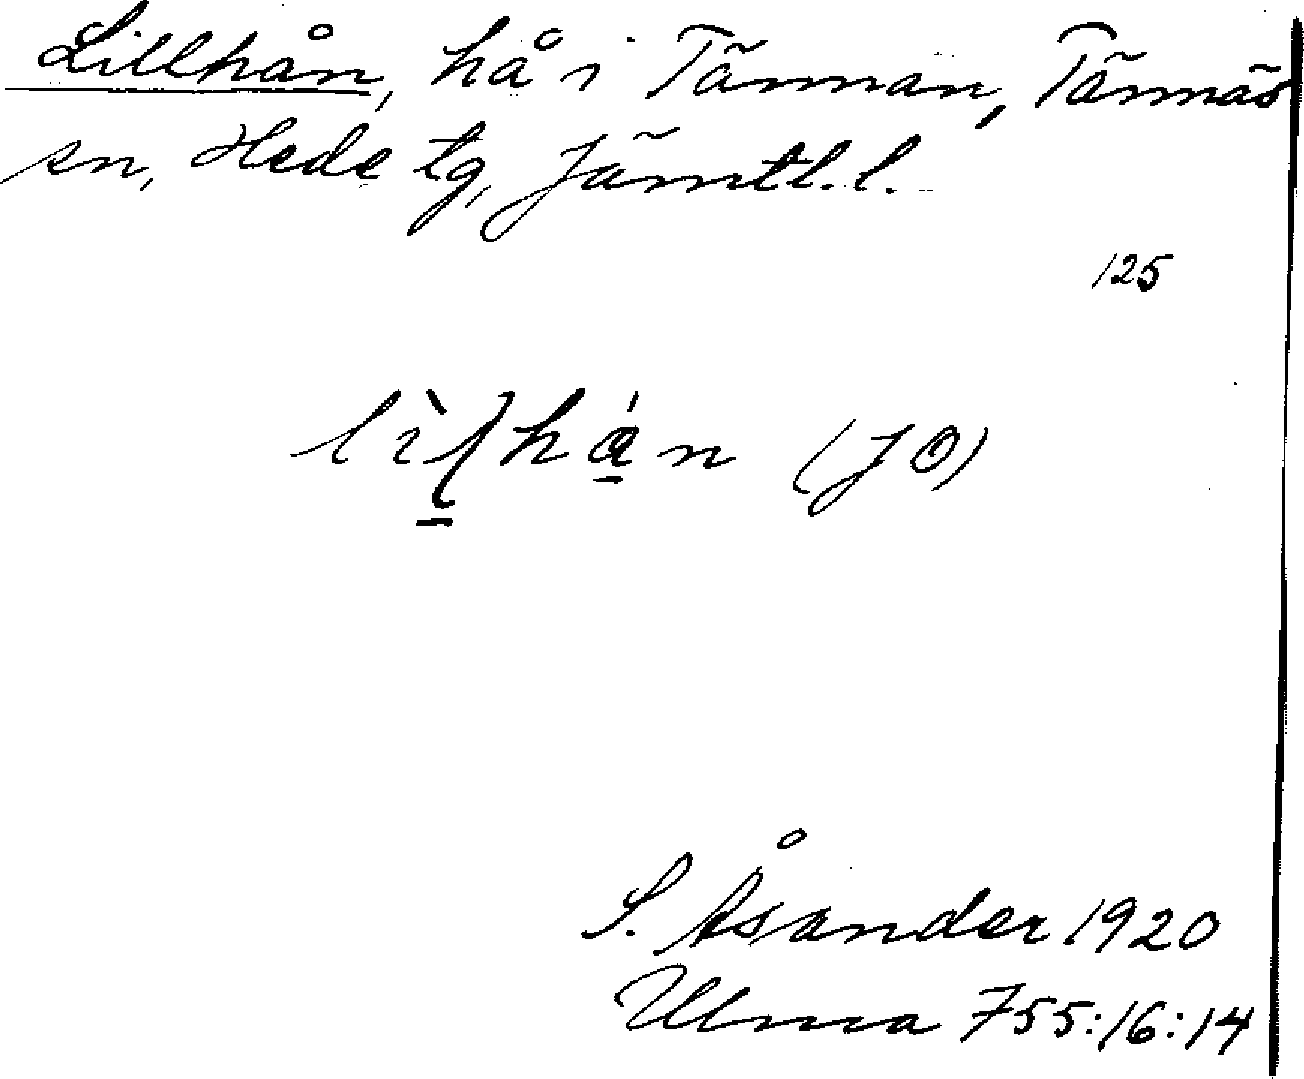 Lillhån, hå i Tännan, Tännäs
sn, Hede tg, Jämtl. l.
125
(JO)
S. Åsander 1920
Ulma 755:16:14